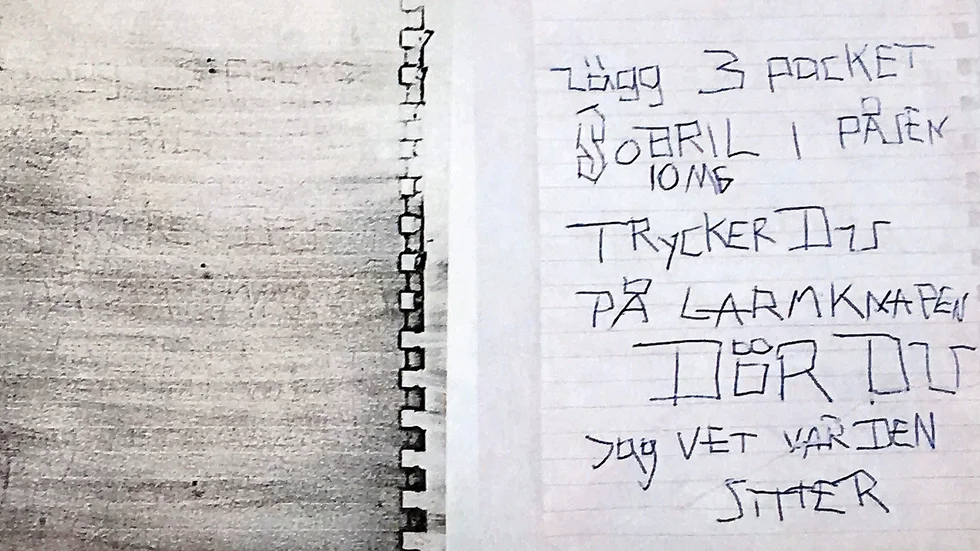 Lägg 3 PACKET
SOBRIL I PÅSEN
10 MG
TRYCKER DU
PÅ LARMKNAPEN
DÖR DU
Jag VET VAR DEN
SITTER